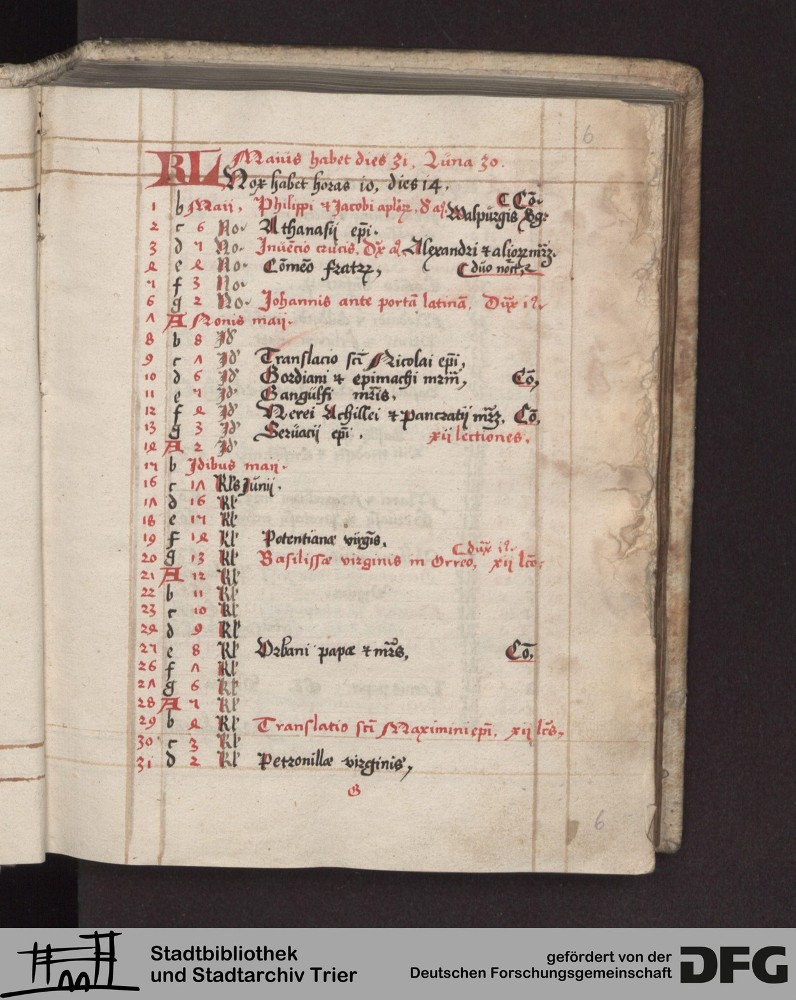 6
KL Maius habet dies 31. Luna 30.
Nox habet horas 10, dies 14.
1 b Maii. Philippi et Jacobi Walpurgis Co.
2 c 6 No. Athanasii epi.
3 d 5 No. Inuēcio crucis. Alexandri et
4 e 4 No. Cōmēo fratrꝫ, duo
5 f 3 No.
6 g 2 No. Johannis ante portā latinā.
7 A Nonis maii.
8 b 8 Id
9 c 7 Id Translacio scti Nicolai epi,
10 d 6 Id Gordiani et epimachi mrm̄, Cō,
11 e 5 Id Gangulfi mr̄is.
12 f 4 Id Nerei Achillei et pancratii Cō,
13 g 3 Id Seruatii epi. xii lectiones.
14 A 2 Id
15 b Idibus maii.
16 c 17 Kls Junii.
17 d 16 Kl
18 e 15 Kl
19 f 14 Kl Potentianæ virgīs.
20 g 13 Kl Basilissæ virginis in Orreo, xii lc̄o.
21 A 12 Kl
22 b 11 Kl
23 c 10 Kl
24 d 9 Kl
25 e 8 Kl Vrbani papæ et mr̄is, Cō,
26 f 7 Kl
27 g 6 Kl
28 A 5 Kl
29 b 4 Kl Translatio scti Maximini epi, xii lc̄s,
30 c 3 Kl
31 d 2 Kl Petronillæ virginis,
G
6
Stadtbibliothek
und Stadtarchiv Trier
gefördert von der
Deutschen Forschungsgemeinschaft
DFG